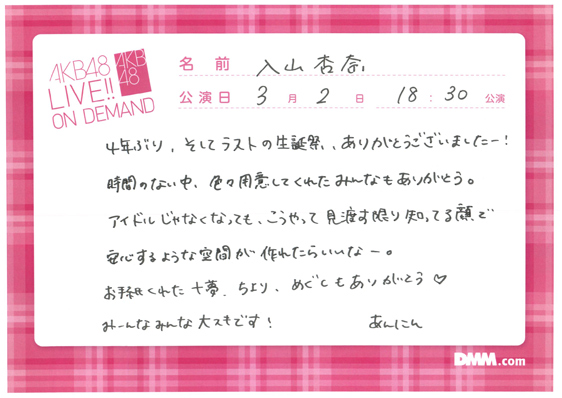 AKB48
LIVE!!
ON DEMAND
AKB
48
名前 入山杏奈
公演日 3月2日 18:30公演
4年ぶり、そしてラストの生誕祭、、ありがとうございましたー!
時間のない中、色々用意してくれたみんなもありがとう。
アイドルじゃなくなっても、こうやって見渡す限り知ってる顔で
安心するような空間が作れたらいいなー。
お手紙くれた十夢、ちより、めぐしもありがとう♡
みーんなみんな大スキです!
あんにん
DMM.com